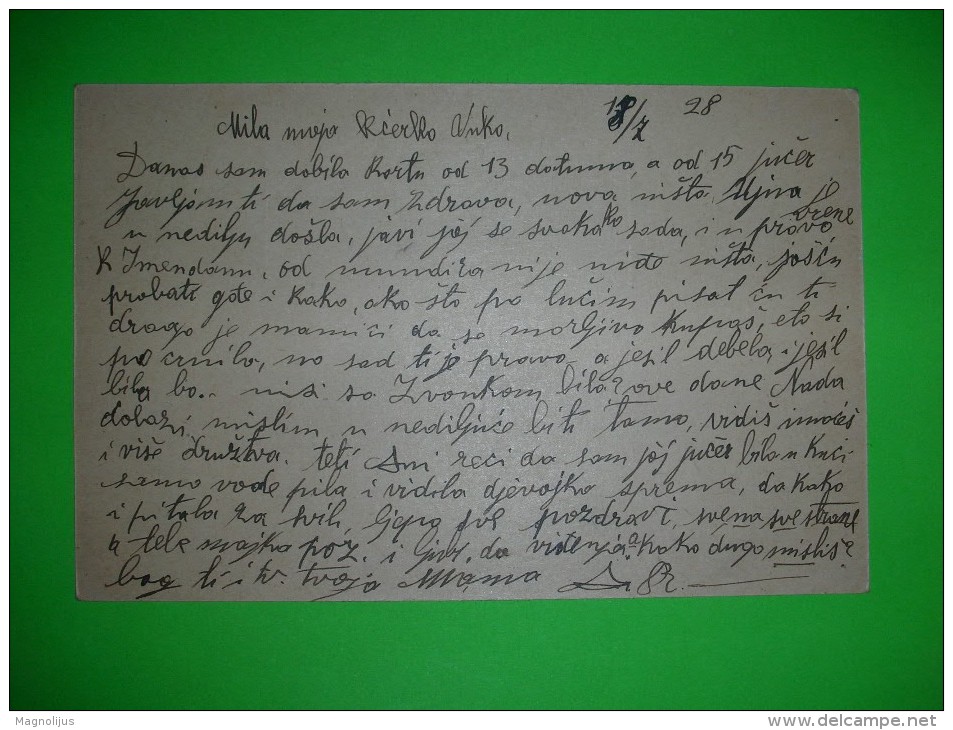 18/7 28
Mila moja kćerko Vuko,
Danas sam dobila kartu od 13 datuma, a od 15 jučer
Javljam ti da sam zdrava, nova ništa. Ujna je
u nedilju došla, javi joj se svakako sada, i u pravo vrene
k Imendanu, od mundira nije niđe ništa, još ću
probati gote i kako, ako što po lučim pisat ću ti
drago je mamici da se marljivo kupaš, eto si
po crnila, no sad ti je pravo a jesil debela i jesil
bila bo.. nisi sa Zvonkom bila ove dane Nada
dolazi, mislim u nedilju će biti tamo, vidiš imaćeš
i više družtva. teti Ani reci da sam joj jučer bila u kući
samo vode pila i vidila djevojka sprema, da kako
i pitala za svih, ljepo sve pozdravi, sve na sve strane
a tebe majka poz. i ljub. do viđenja a kako dugo misliš
bog ti i tv. tvoja Mama
Magnolijus
www.delcampe.net